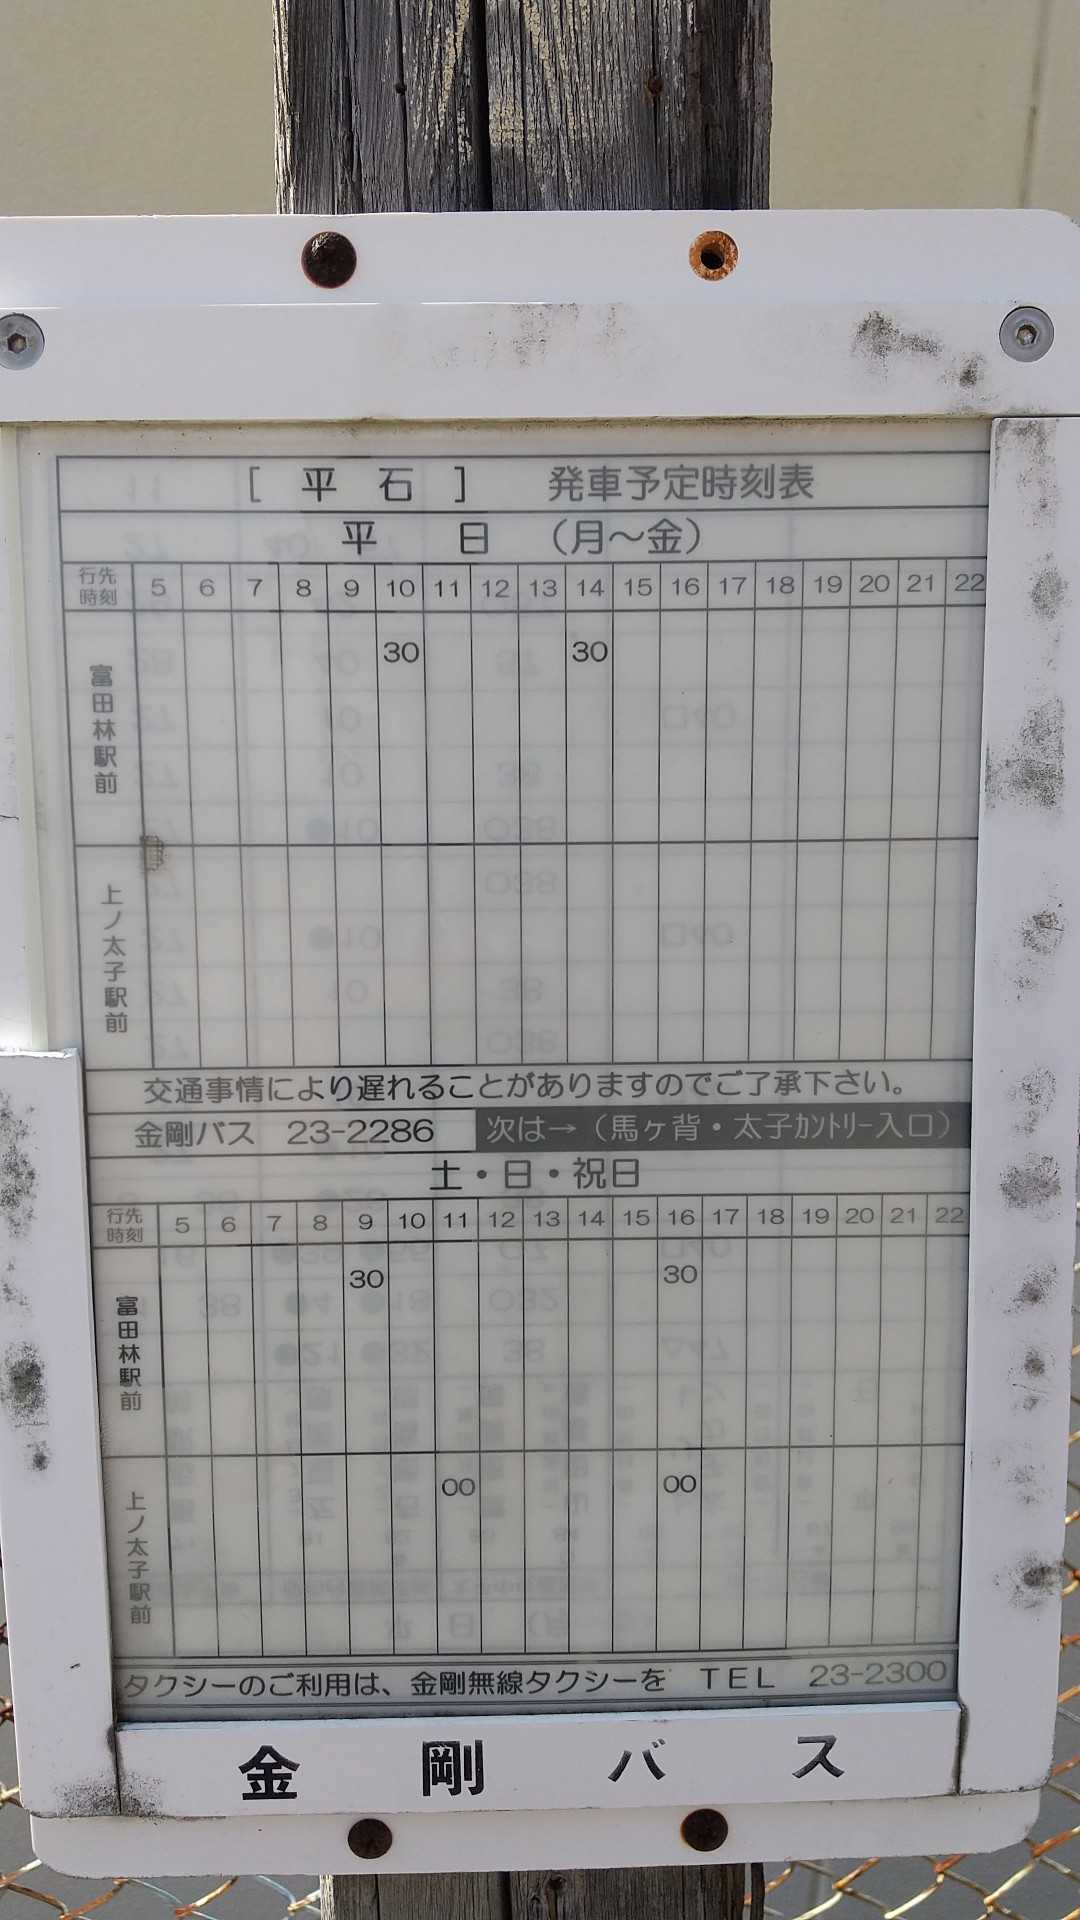 [ 平 石 ] 発車予定時刻表
平 日 (月～金)
行先 時刻 5 6 7 8 9 10 11 12 13 14 15 16 17 18 19 20 21 22
富田林駅前 30 30
上ノ太子駅前
交通事情により遅れることがありますのでご了承下さい。
金剛バス 23-2286 次は→（馬ヶ背・太子ｶﾝﾄﾘｰ入口）
土・日・祝日
行先 時刻 5 6 7 8 9 10 11 12 13 14 15 16 17 18 19 20 21 22
富田林駅前 30 30
上ノ太子駅前 00 00
タクシーのご利用は、金剛無線タクシーを TEL 23-2300
金剛バス